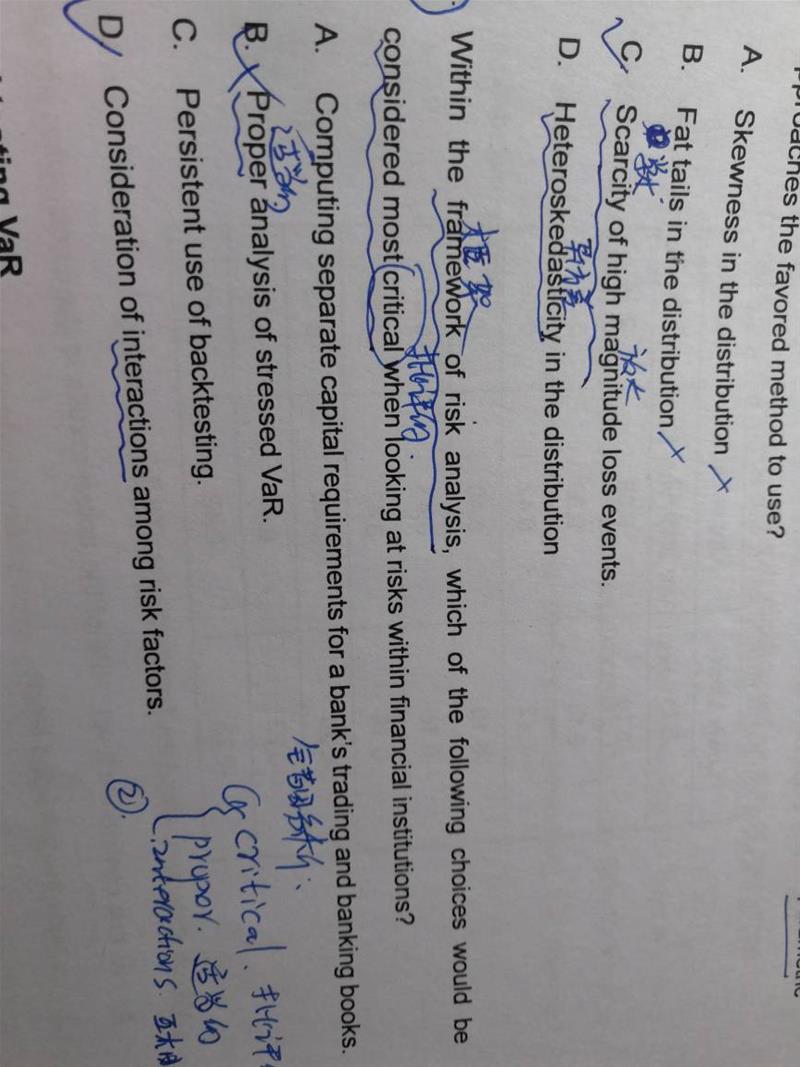 the favored method to use?
A. Skewness in the distribution ×
B. Fat tails in the distribution ×
C. Scarcity of high magnitude loss events.
D. Heteroskedasticity in the distribution
Within the framework of risk analysis, which of the following choices would be
considered most critical when looking at risks within financial institutions?
A. Computing separate capital requirements for a bank's trading and banking books.
B. Proper analysis of stressed VaR.
C. Persistent use of backtesting.
D. Consideration of interactions among risk factors.
框架
适当的
critical.
propor. 适当的
interactions.
②.
VaR